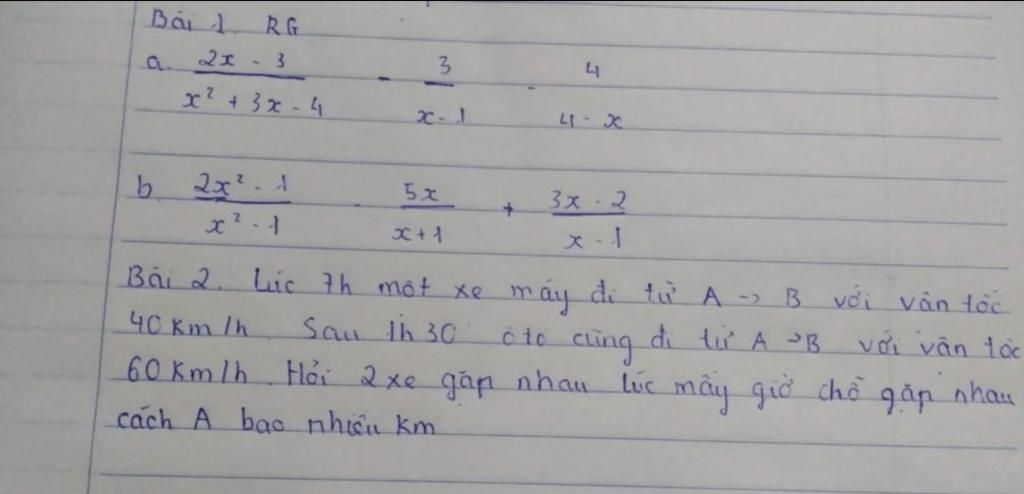 Bài 1. RG
a. (2x - 3)/(x² + 3x - 4) - 3/(x - 1) - 4/(4 - x)
b. (2x² - 1)/(x² - 1) - 5x/(x + 1) + (3x - 2)/(x - 1)
Bài 2. Lúc 7h một xe máy đi từ A -> B với vận tốc
40 Km/h. Sau 1h30 ôtô cũng đi từ A -> B với vận tốc
60 Km/h. Hỏi 2 xe gặp nhau lúc mấy giờ chỗ gặp nhau
cách A bao nhiêu Km